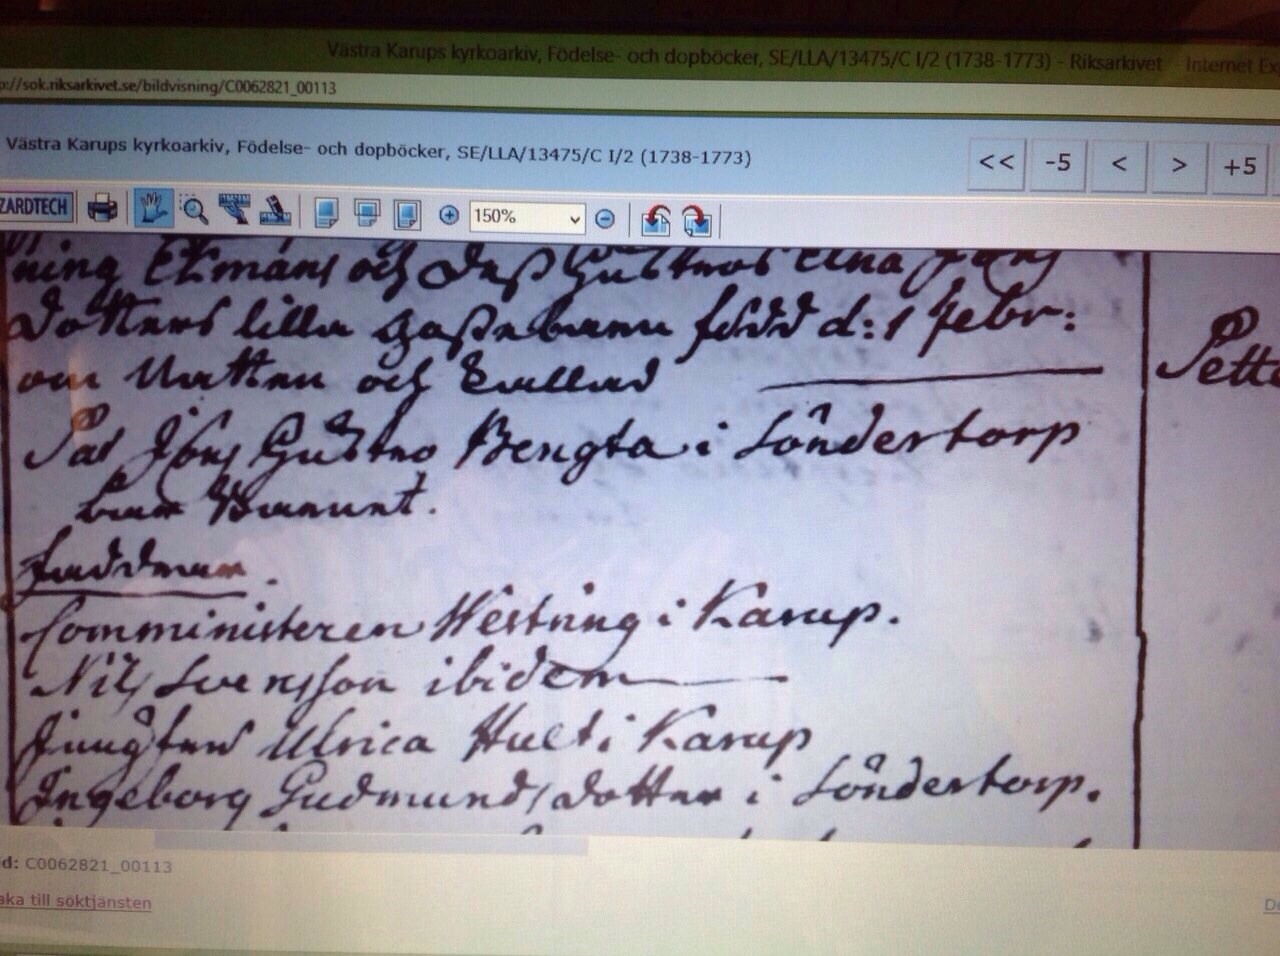 Västra Karups kyrkoarkiv, Födelse- och dopböcker, SE/LLA/13475/C I/2 (1738-1773) - Riksarkivet - Internet Ex
p://sok.riksarkivet.se/bildvisning/C0062821_00113
Västra Karups kyrkoarkiv, Födelse- och dopböcker, SE/LLA/13475/C I/2 (1738-1773)
<< -5 < > +5
ZARDTECH 150%
ning Ekmans och deß Hustros Elna Jöns
dotters lilla gaßebarn född d: 1 Febr:
om natten och kallad
Pette
Pål Jöns Hustro Bengta i Löndertorp
bar Barnet.
Faddrar.
Comministeren Westring i Karup.
Nils Svensson ibidem
Jungfru Ulrica Hult i Karup
Ingeborg Gudmunds dotter i Löndertorp.
d: C0062821_00113
aka till söktjänsten